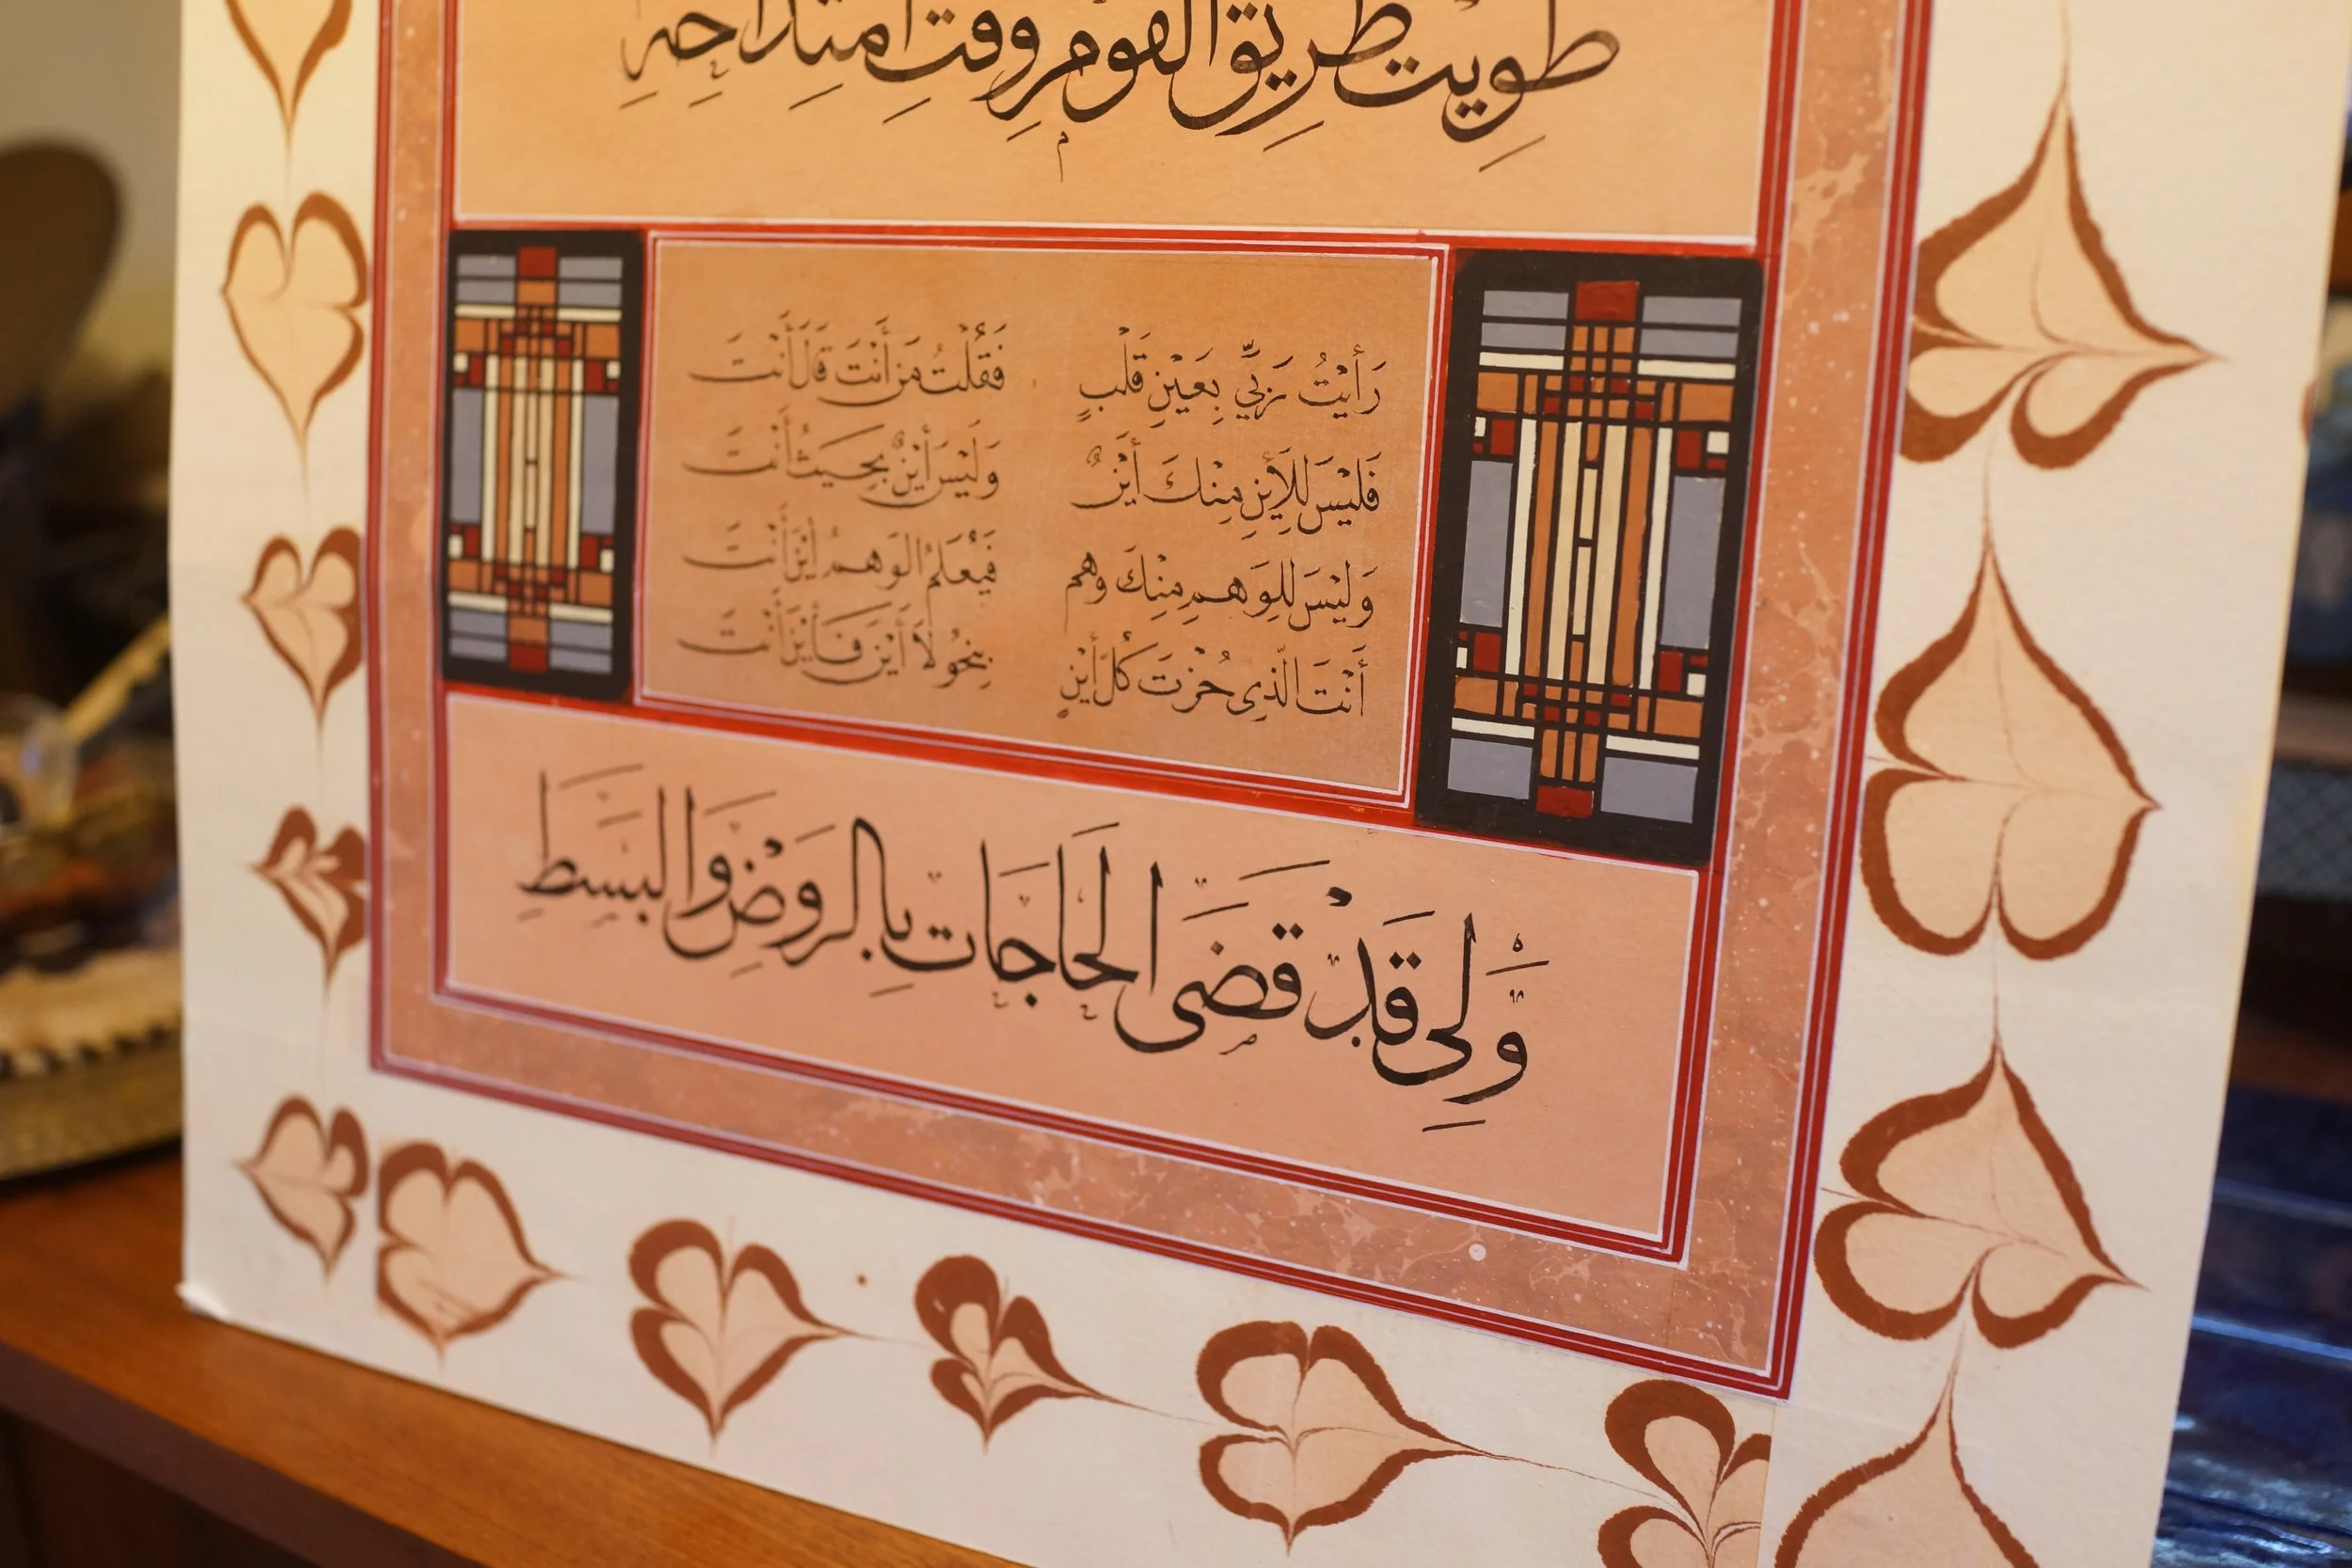 طويت طريق القوم وقت امتداحهِ
رَأَيْتُ رَبِّي بِعَيْنِ قَلْبٍ فَقُلْتُ مَنْ أَنْتَ قَالَ أَنْتَ
فَلَيْسَ لِلأَيْنِ مِنْكَ أَيْنٌ وَلَيْسَ أَيْنٌ بِحَيْثُ أَنْتَ
وَلَيْسَ لِلوَهمِ مِنْكَ وهم فَيَعْلَمُ الوَهمُ أَيْنَ أَنْتَ
أَنْتَ الَّذِي حُزْتَ كُلَّ أَيْنٍ بِنَحْوِ لاَ أَيْنَ فَأَيْنَ أَنْتَ
وَّلِي قَدْ قَضَى الحَاجَات بِالرَوْضِ وَالبَسَطِ